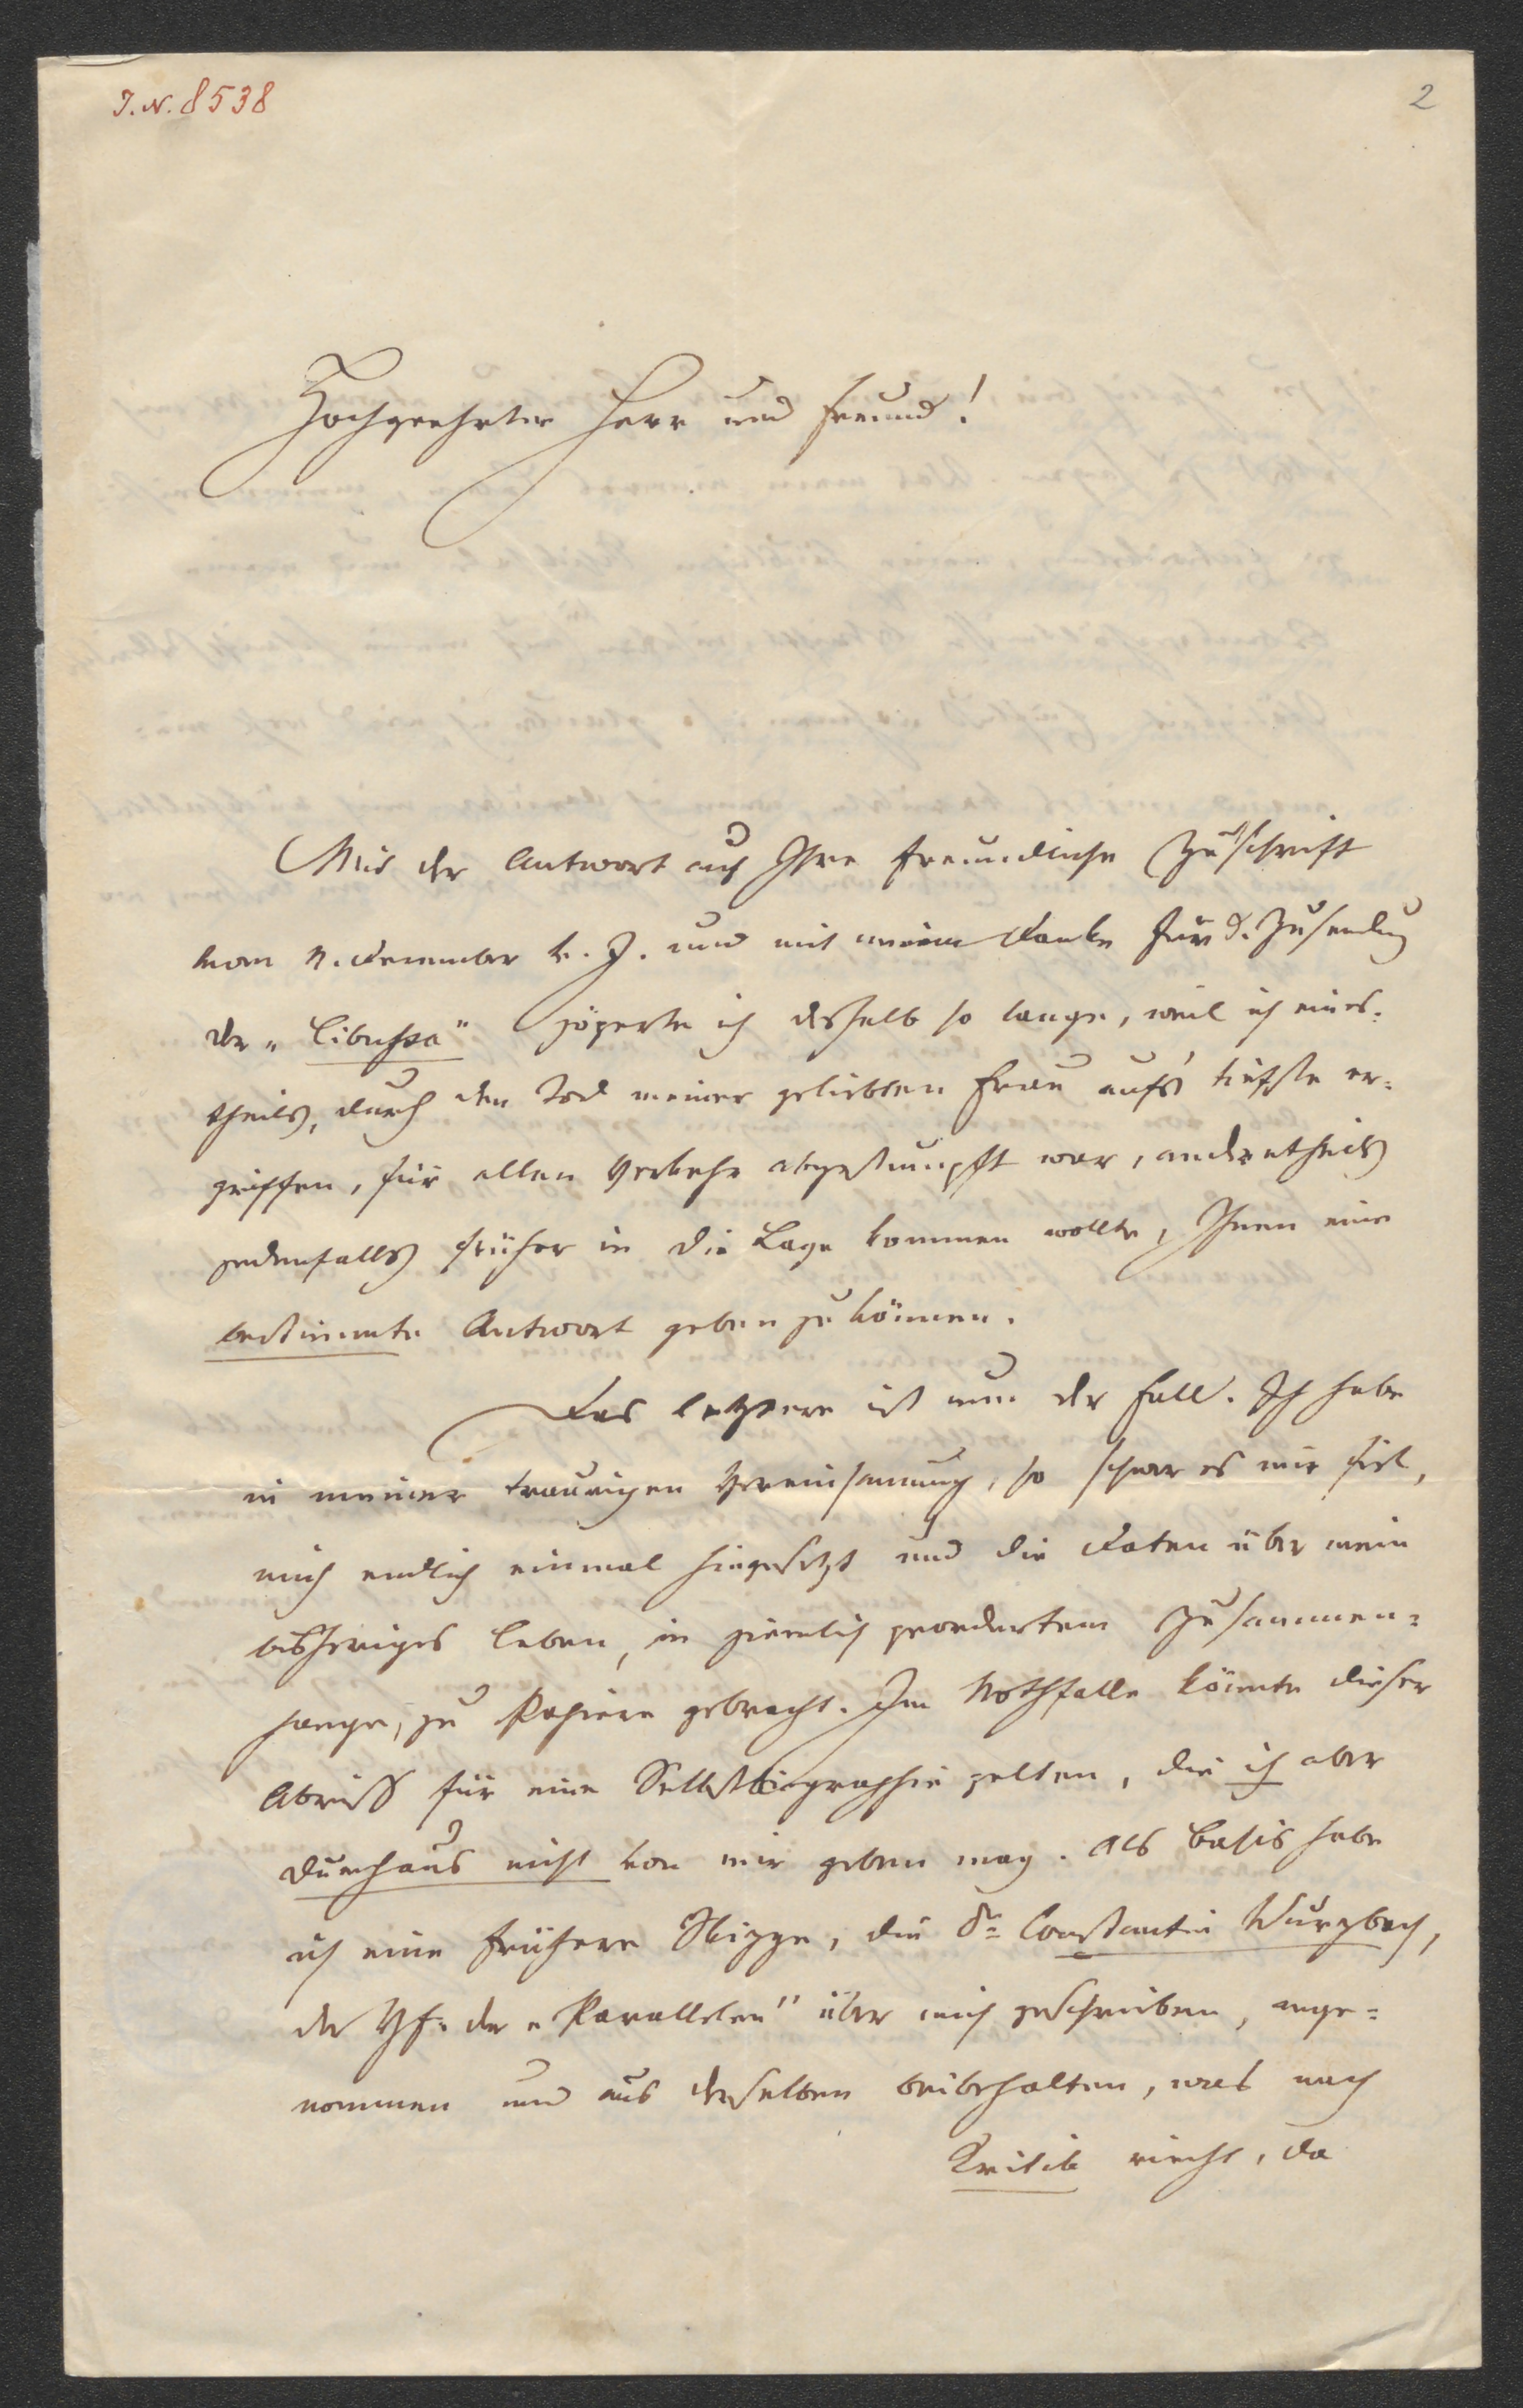 I. N. 8538
2
Hochgeehrter Herr und Freund!
Mit der Antwort auf Ihre freundliche Zuschrift
vom Dezember v. J. und mit meinem Danke für d. Zusendung
der „Libussa" zögerte ich deshalb so lange, weil ich eines-
theils, durch den Tod meiner geliebten Frau aufs tiefste er-
griffen, für allen Verkehr abgestumpft war, anderntheils
jedenfalls früher in die Lage kommen wollte, Ihnen eine
bestimmte Antwort geben zu können.
Das letztere ist nun der Fall. Ich habe
in meiner traurigen Vereinsamung, so schwer es mir fiel,
mich endlich einmal hingesetzt und die Daten über mein
bisheriges Leben, in ziemlich geordnetem Zusammen-
hange, zu Papiere gebracht. Im Nothfalle könnte dieser
Abriß für eine Selbstbiographie gelten, die ich aber
durchaus nicht von mir geben mag. Als Basis habe
ich eine frühere Skizze, die Dr Constantin Wurzbach,
der Vf. der „Parallelen" über mich geschrieben, ange-
nommen und aus derselben beibehalten, was nach
Kritik riecht, da